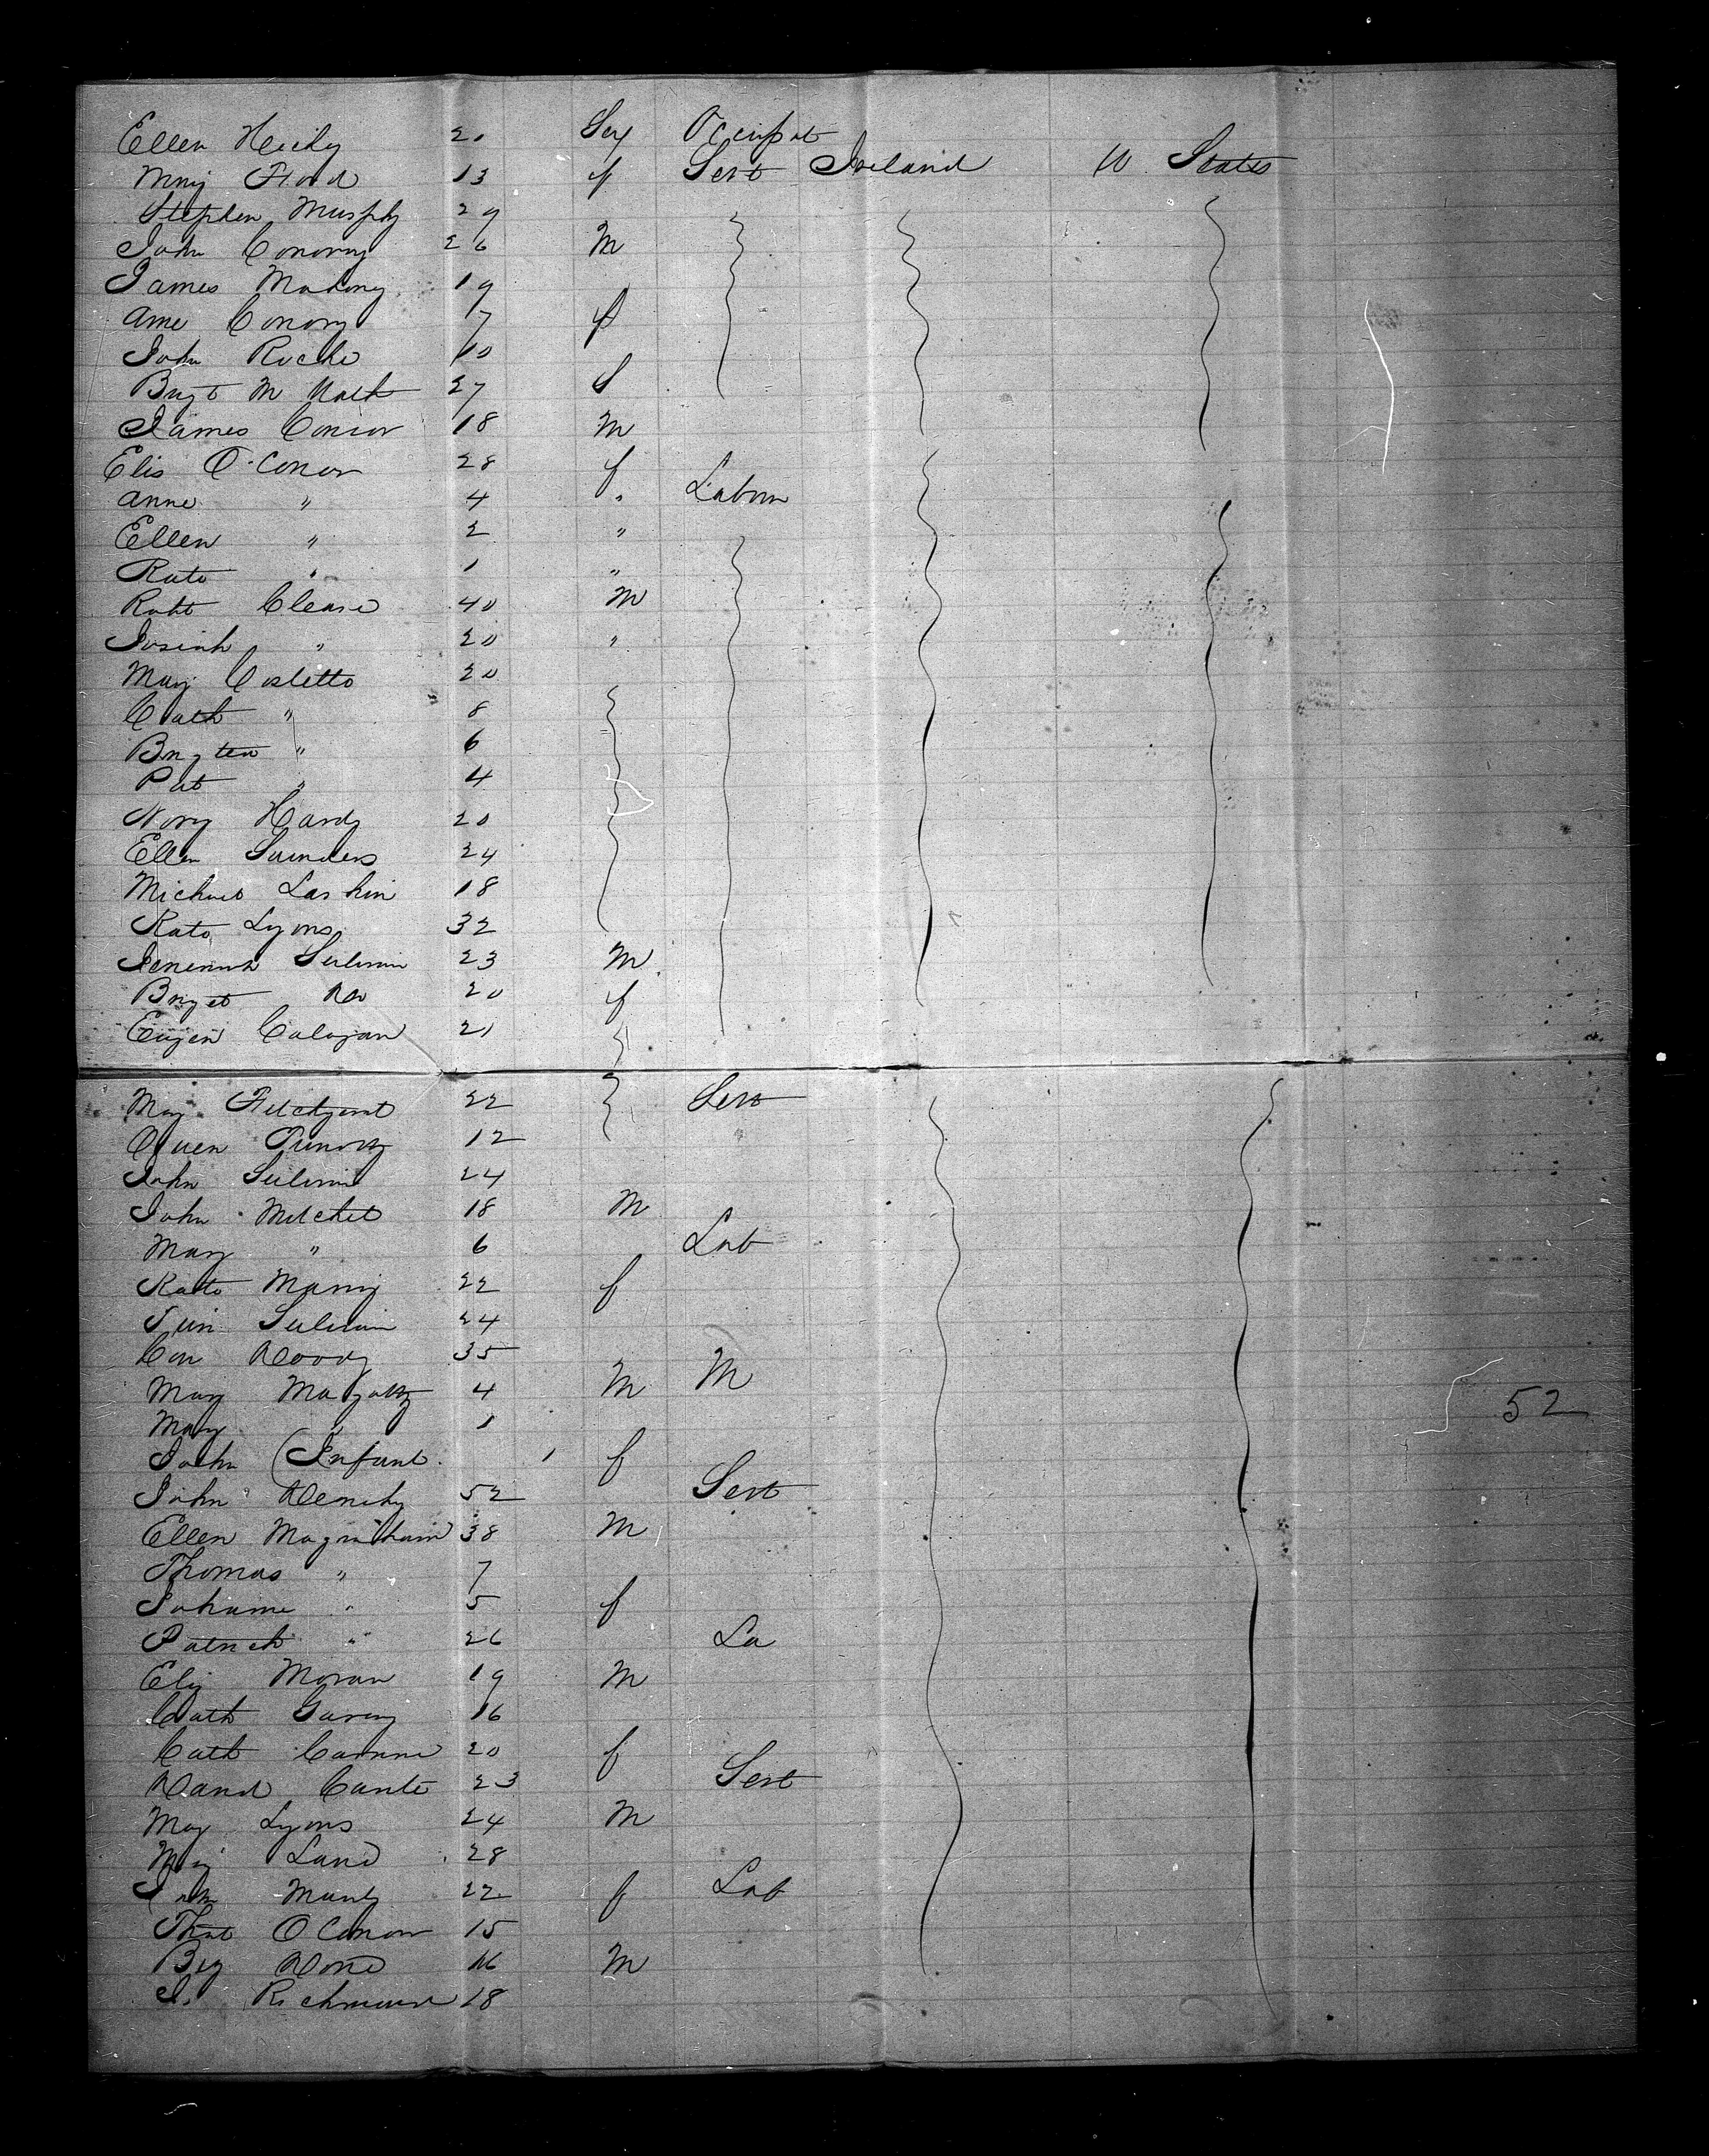 Ellen Heidy 20 Sex Occupat
Mary Flood 13 f Sert Ireland U States
Stephen Murphy 29
John Conorry 26 M
James Mahony 19
Ame Conory 17 f
John Roche 10
Brigt M Nalt 27 f
James Conior 18 M
Elis O'Conor 28 f
Anne " 4 " Laborer
Ellen " 2 "
Kate " 1 "
Robt Clease 40 M
Josiah " 20 "
Mary Costetto 20
Cath " 8
Brigten " 6
Pat " 4
Nory Hardy 20
Ellen Saunders 24
Michael Larkin 18
Kate Lyons 32
Jeremiah Sulivan 23 M
Briget Do 20 f
Eugen Calagan 21
May 22 Sert
Owen 12
John Sulivan 24
John Mitchel 18 M
Mary " 6 Lab
Kate Marry 22 f
Tim Sulivan 24
Con Doody 35
Mary 4 M M
52
Mary " 1
John (Infant. 1 f
John 52 Sert
Ellen 38 M
Thomas " 7
Johanne " 5 f
Patrick " 26 La
Eliz Moran 19 M
Cath Garvey 16
Cath 20 f
David 23 Sert
May Lyons 24 M
May Land 28
22 f Lab
O'Connor 15
16 M
J. Richmond 18